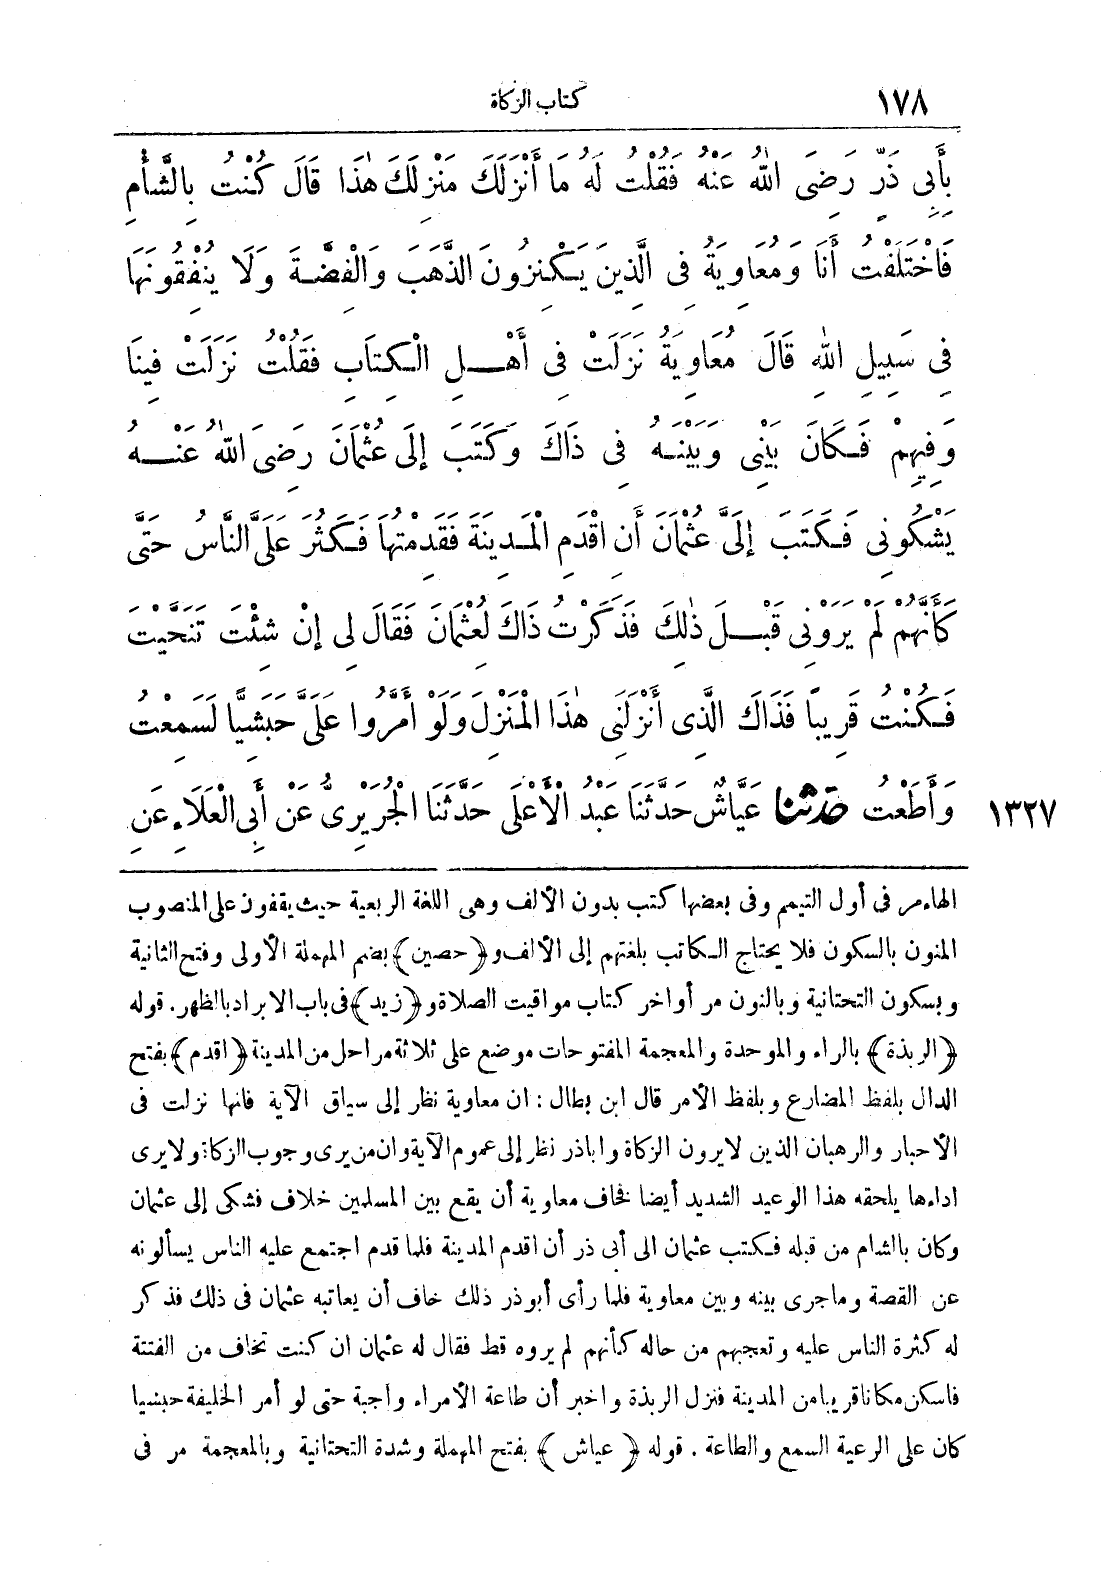 ١٧٨ كتاب الزكاة
بِأَبِي ذَرٍّ رَضِيَ اللهُ عَنْهُ فَقُلْتُ لَهُ مَا أَنْزَلَكَ مَنْزِلَكَ هَذَا قَالَ كُنْتُ بِالشَّأْمِ
فَاخْتَلَفْتُ أَنَا وَمُعَاوِيَةُ فِي الَّذِينَ يَكْنِزُونَ الذَّهَبَ وَالْفِضَّةَ وَلَا يُنْفِقُونَهَا
فِي سَبِيلِ اللهِ قَالَ مُعَاوِيَةُ نَزَلَتْ فِي أَهْلِ الْكِتَابِ فَقُلْتُ نَزَلَتْ فِينَا
وَفِيهِمْ فَكَانَ بَيْنِي وَبَيْنَهُ فِي ذَاكَ وَكَتَبَ إِلَى عُثْمَانَ رَضِيَ اللهُ عَنْهُ
يَشْكُونِي فَكَتَبَ إِلَيَّ عُثْمَانُ أَنِ اقْدَمِ الْمَدِينَةَ فَقَدِمْتُهَا فَكَثُرَ عَلَيَّ النَّاسُ حَتَّى
كَأَنَّهُمْ لَمْ يَرَوْنِي قَبْلَ ذَلِكَ فَذَكَرْتُ ذَاكَ لِعُثْمَانَ فَقَالَ لِي إِنْ شِئْتَ تَنَحَّيْتَ
فَكُنْتَ قَرِيبًا فَذَاكَ الَّذِي أَنْزَلَنِي هَذَا الْمَنْزِلَ وَلَوْ أَمَّرُوا عَلَيَّ حَبَشِيًّا لَسَمِعْتُ
وَأَطَعْتُ حَدَّثَنَا عَيَّاشٌ حَدَّثَنَا عَبْدُ الْأَعْلَى حَدَّثَنَا الْجُرَيْرِيُّ عَنْ أَبِي الْعَلَاءِ عَنِ ١٣٢٧
الهاء مر في أول التيمم وفي بعضها كتب بدون الألف وهي اللغة الربعية حيث يقفون على المنصوب
المنون بالسكون فلا يحتاج الكاتب بلغتهم إلى الألف و﴿حصين﴾ بضم المهملة الأولى وفتح الثانية
وبسكون التحتانية وبالنون مر أواخر كتاب مواقيت الصلاة و﴿زيد﴾ في باب الابراد بالظهر. قوله
﴿الربذة﴾ بالراء والموحدة والمعجمة المفتوحات موضع على ثلاثة مراحل من المدينة ﴿اقدم﴾ بفتح
الدال بلفظ المضارع وبلفظ الأمر قال ابن بطال : ان معاوية نظر إلى سياق الآية فانها نزلت في
الأحبار والرهبان الذين لايرون الزكاة واباذر نظر إلى عموم الآية وان من يرى وجوب الزكاة ولايرى
اداءها يلحقه هذا الوعيد الشديد أيضا فخاف معاوية أن يقع بين المسلمين خلاف فشكى إلى عثمان
وكان بالشام من قبله فكتب عثمان الى أبي ذر أن اقدم المدينة فلما قدم اجتمع عليه الناس يسألونه
عن القصة وماجرى بينه وبين معاوية فلما رأى أبوذر ذلك خاف أن يعاتبه عثمان في ذلك فذكر
له كثرة الناس عليه وتعجبهم من حاله كأنهم لم يروه قط فقال له عثمان ان كنت تخاف من الفتنة
فاسكن مكانا قريبا من المدينة فنزل الربذة واخبر أن طاعة الأمراء واجبة حتى لو أمر الخليفة حبشيا
كان على الرعية السمع والطاعة . قوله ﴿عياش﴾ بفتح المهملة وشدة التحتانية وبالمعجمة مر في